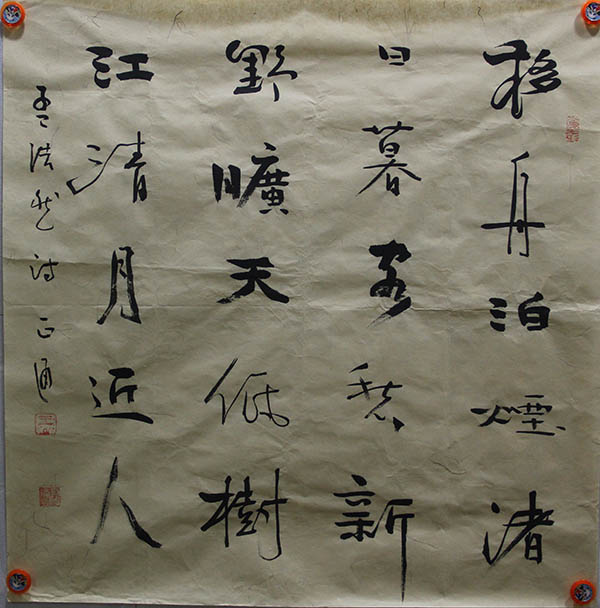 移舟泊煙渚
日暮客愁新
野曠天低樹
江清月近人
孟浩然詩 正通